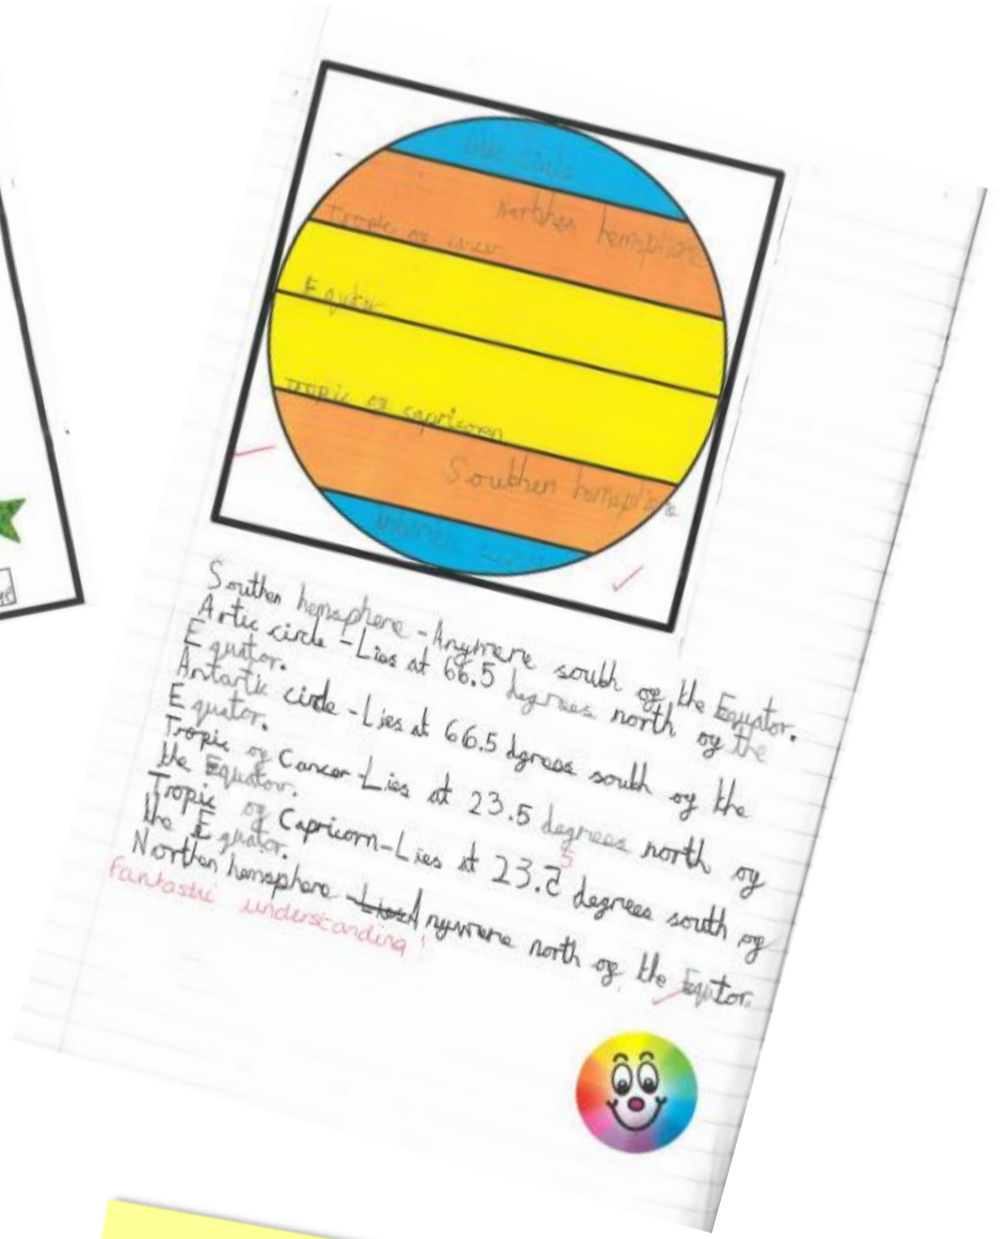 circle
Northen hemisphere
Tropic og cancer
Equator
Tropic og capricorn
Southen hemisphere
Antartic
Southen hemsphere - Anymere south og the Equator.
Artic circle - Lies at 66.5 degrees north og the
Equator.
Antartic circle - Lies at 66.5 dgrees south og the
Equator.
Tropic og Cancer - Lies at 23.5 degrees north og
the Equator.
Tropic og Capricorn - Lies at 23.5 degrees south og
the Equator.
Northen hemsphere - Lies Anymere north og the Eqator.
fantastic understanding!